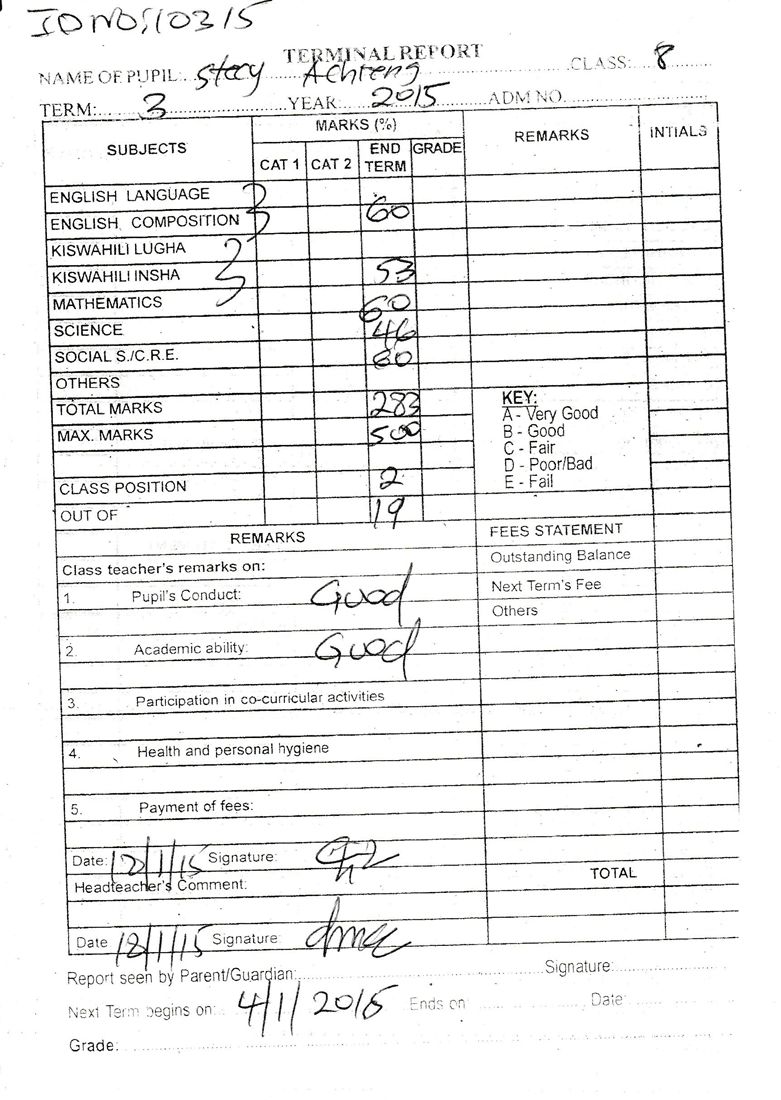 ID NO: 10315
TERMINAL REPORT
NAME OF PUPIL: Stecy Achieng CLASS: 8
TERM: 3 YEAR: 2015 ADM NO.
SUBJECTS MARKS (%) REMARKS INTIALS
CAT 1 CAT 2 END TERM GRADE
ENGLISH LANGUAGE
ENGLISH COMPOSITION 60
KISWAHILI LUGHA
KISWAHILI INSHA 53
MATHEMATICS 60
SCIENCE 46
SOCIAL S./C.R.E.
OTHERS
TOTAL MARKS 283
MAX. MARKS 500
CLASS POSITION 2
OUT OF 19
KEY:
A - Very Good
B - Good
C - Fair
D - Poor/Bad
E - Fail
REMARKS
Class teacher's remarks on:
1. Pupil's Conduct: Good
2. Academic ability: Good
3. Participation in co-curricular activities
4. Health and personal hygiene
5. Payment of fees:
Date: Signature:
Headteacher's Comment:
Date Signature
FEES STATEMENT
Outstanding Balance
Next Term's Fee
Others
TOTAL
Report seen by Parent/Guardian: Signature:
Next Term begins on: 4/1/ Ends on Date:
Grade: